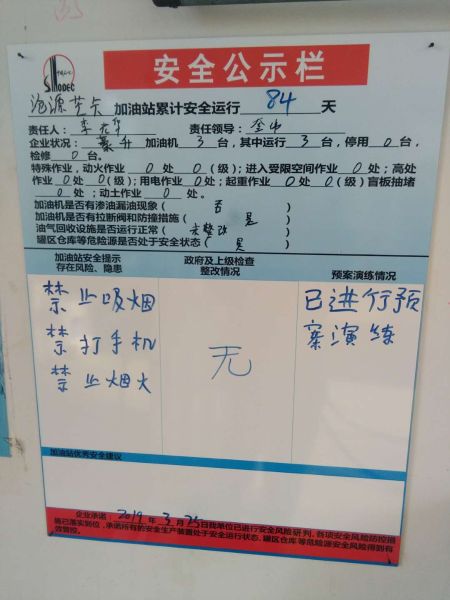 SINODEC
安全公示栏
加油站累计安全运行 84 天
责任人： 责任领导：
企业状况： 加油机 3 台，其中运行 3 台，停用 0 台，
检修 0 台。
特殊作业，动火作业 0 处 0 （级）；进入受限空间作业 0 处；高处
作业 0 处 0 （级）；用电作业 0 处；起重作业 0 处 0 （级）盲板抽堵
0 处；动土作业 0 处。
加油机是否有渗油漏油现象（ 否 ）
加油机是否有拉断阀和防撞措施（ 是 ）
油气回收设施是否运行正常（ 未整改 ）
罐区仓库等危险源是否处于安全状态（ 是 ）
加油站安全提示
存在风险、隐患
禁止吸烟
禁打手机
禁止烟火
政府及上级检查
整改情况
无
预案演练情况
已进行预
案演练
加油站优秀安全建议
企业承诺：2019 年 3 月 25 日我单位已进行安全风险研判，各项安全风险防控措
施已落实到位，承诺所有的安全生产装置处于安全运行状态，罐区仓库等危险源安全风险得到有
效管控。